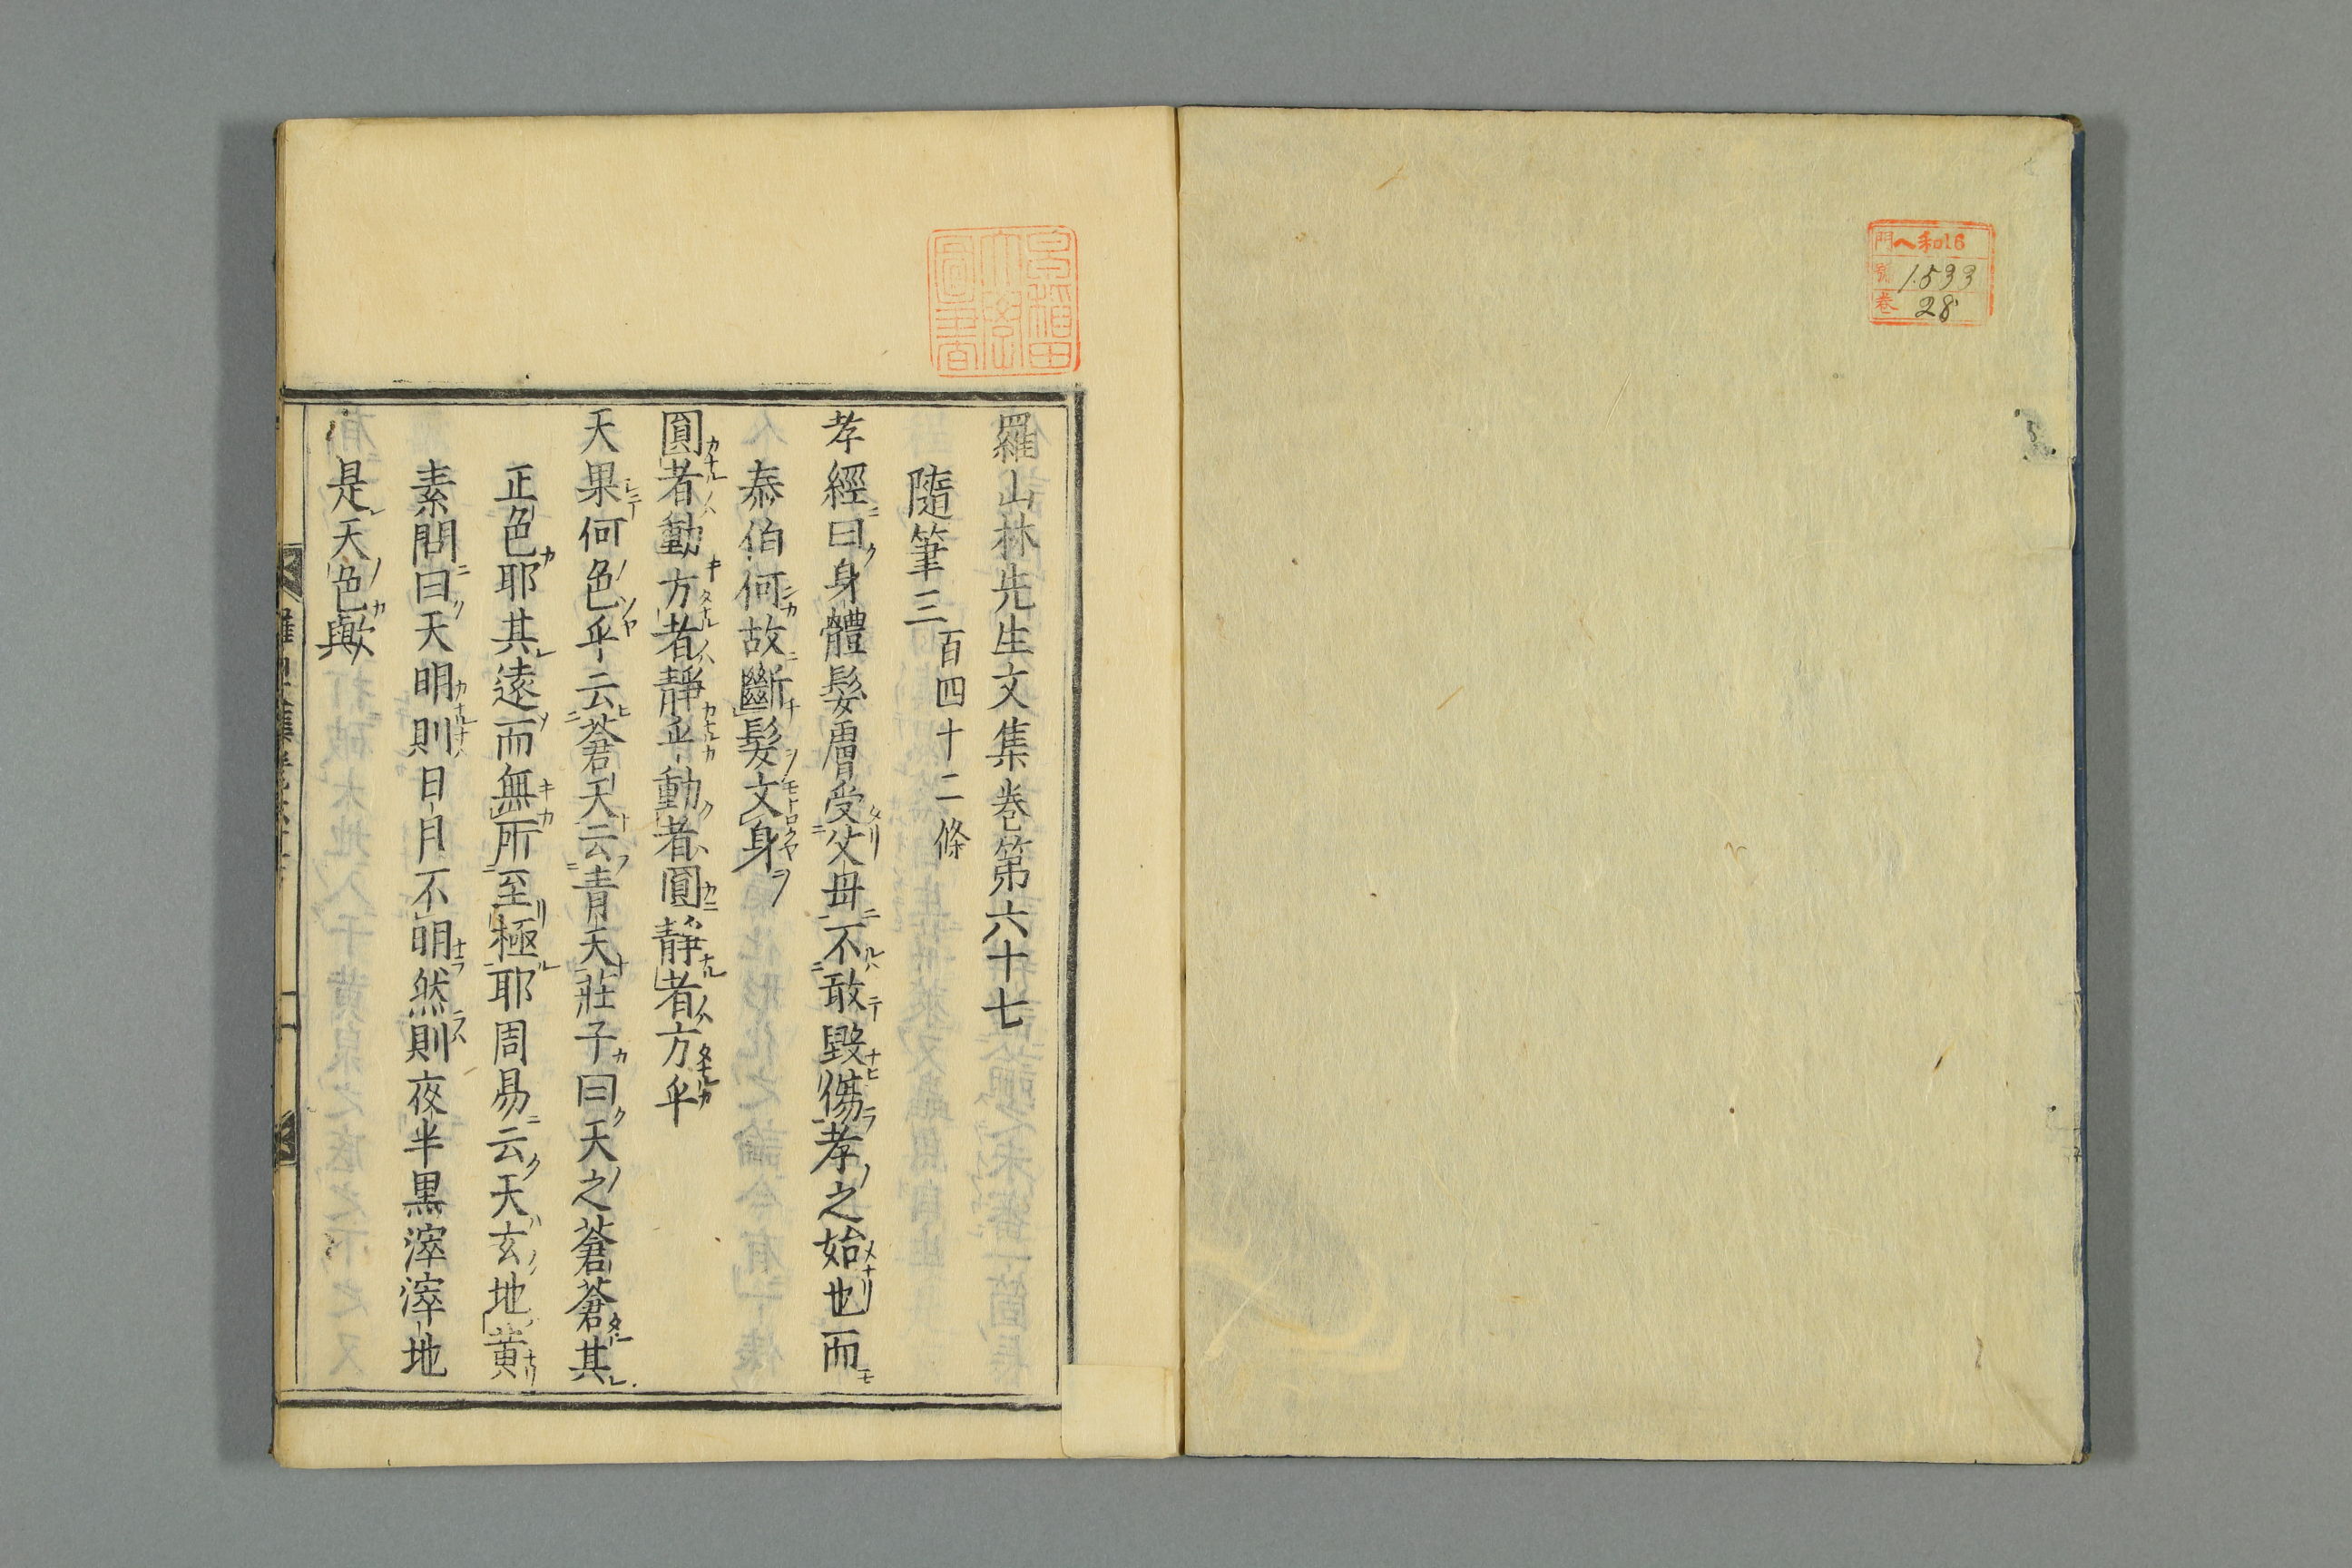 門 ヘ和16
號 1533
卷 28
早稲田大學圖書
羅山林先生文集卷第六十七
隨筆三 百四十二條
孝經曰身體髮膚受父母不敢毀傷孝之始也而
泰伯何故斷髮文身
圓者動方者靜乎動者圓靜者方乎
天果何色乎云蒼天云青天莊子曰天之蒼蒼其
正色耶其遠而無所至極耶周易云天玄地黄
素問曰天明則日月不明然則夜半黒滓滓地
是天色歟